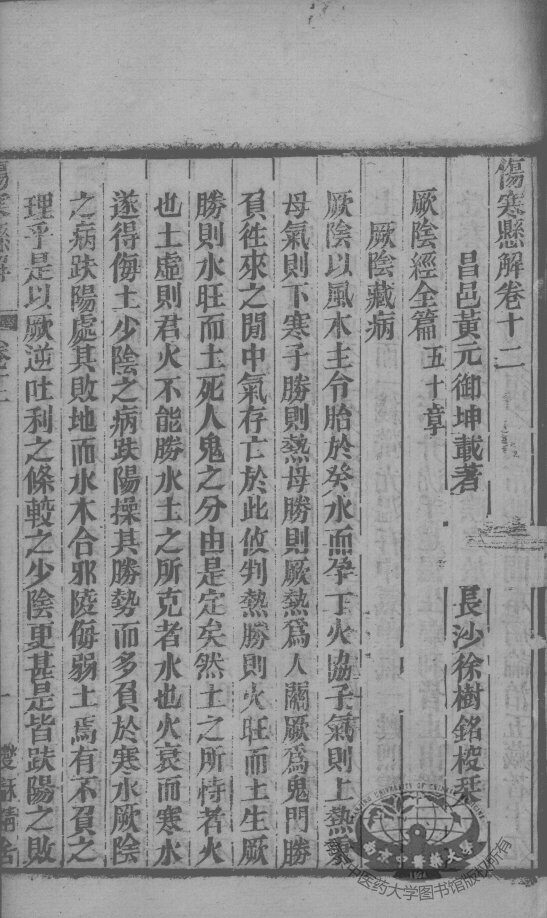 傷寒懸解卷十二
昌邑黃元御坤載著 長沙徐樹銘校栞
厥陰經全篇五十章
厥陰藏病
厥陰以風木主令胎於癸水而孕丁火協子氣則上熱秉
母氣則下寒子勝則熱母勝則厥熱為人關厥為鬼門勝
負徃來之閒中氣存亡於此攸判熱勝則火旺而土生厥
勝則水旺而土死人鬼之分由是定矣然土之所恃者火
也土虛則君火不能勝水土之所克者水也火衰而寒水
遂得侮土少陰之病趺陽操其勝勢而多負於寒水厥陰
之病趺陽處其敗地而水木合邪陵侮弱土焉有不負之
理乎是以厥逆吐利之條較之少陰更甚是皆趺陽之敗
傷寒懸解 卷十二 一
南京中醫藥大學
南京中医药大学图书馆版权所有